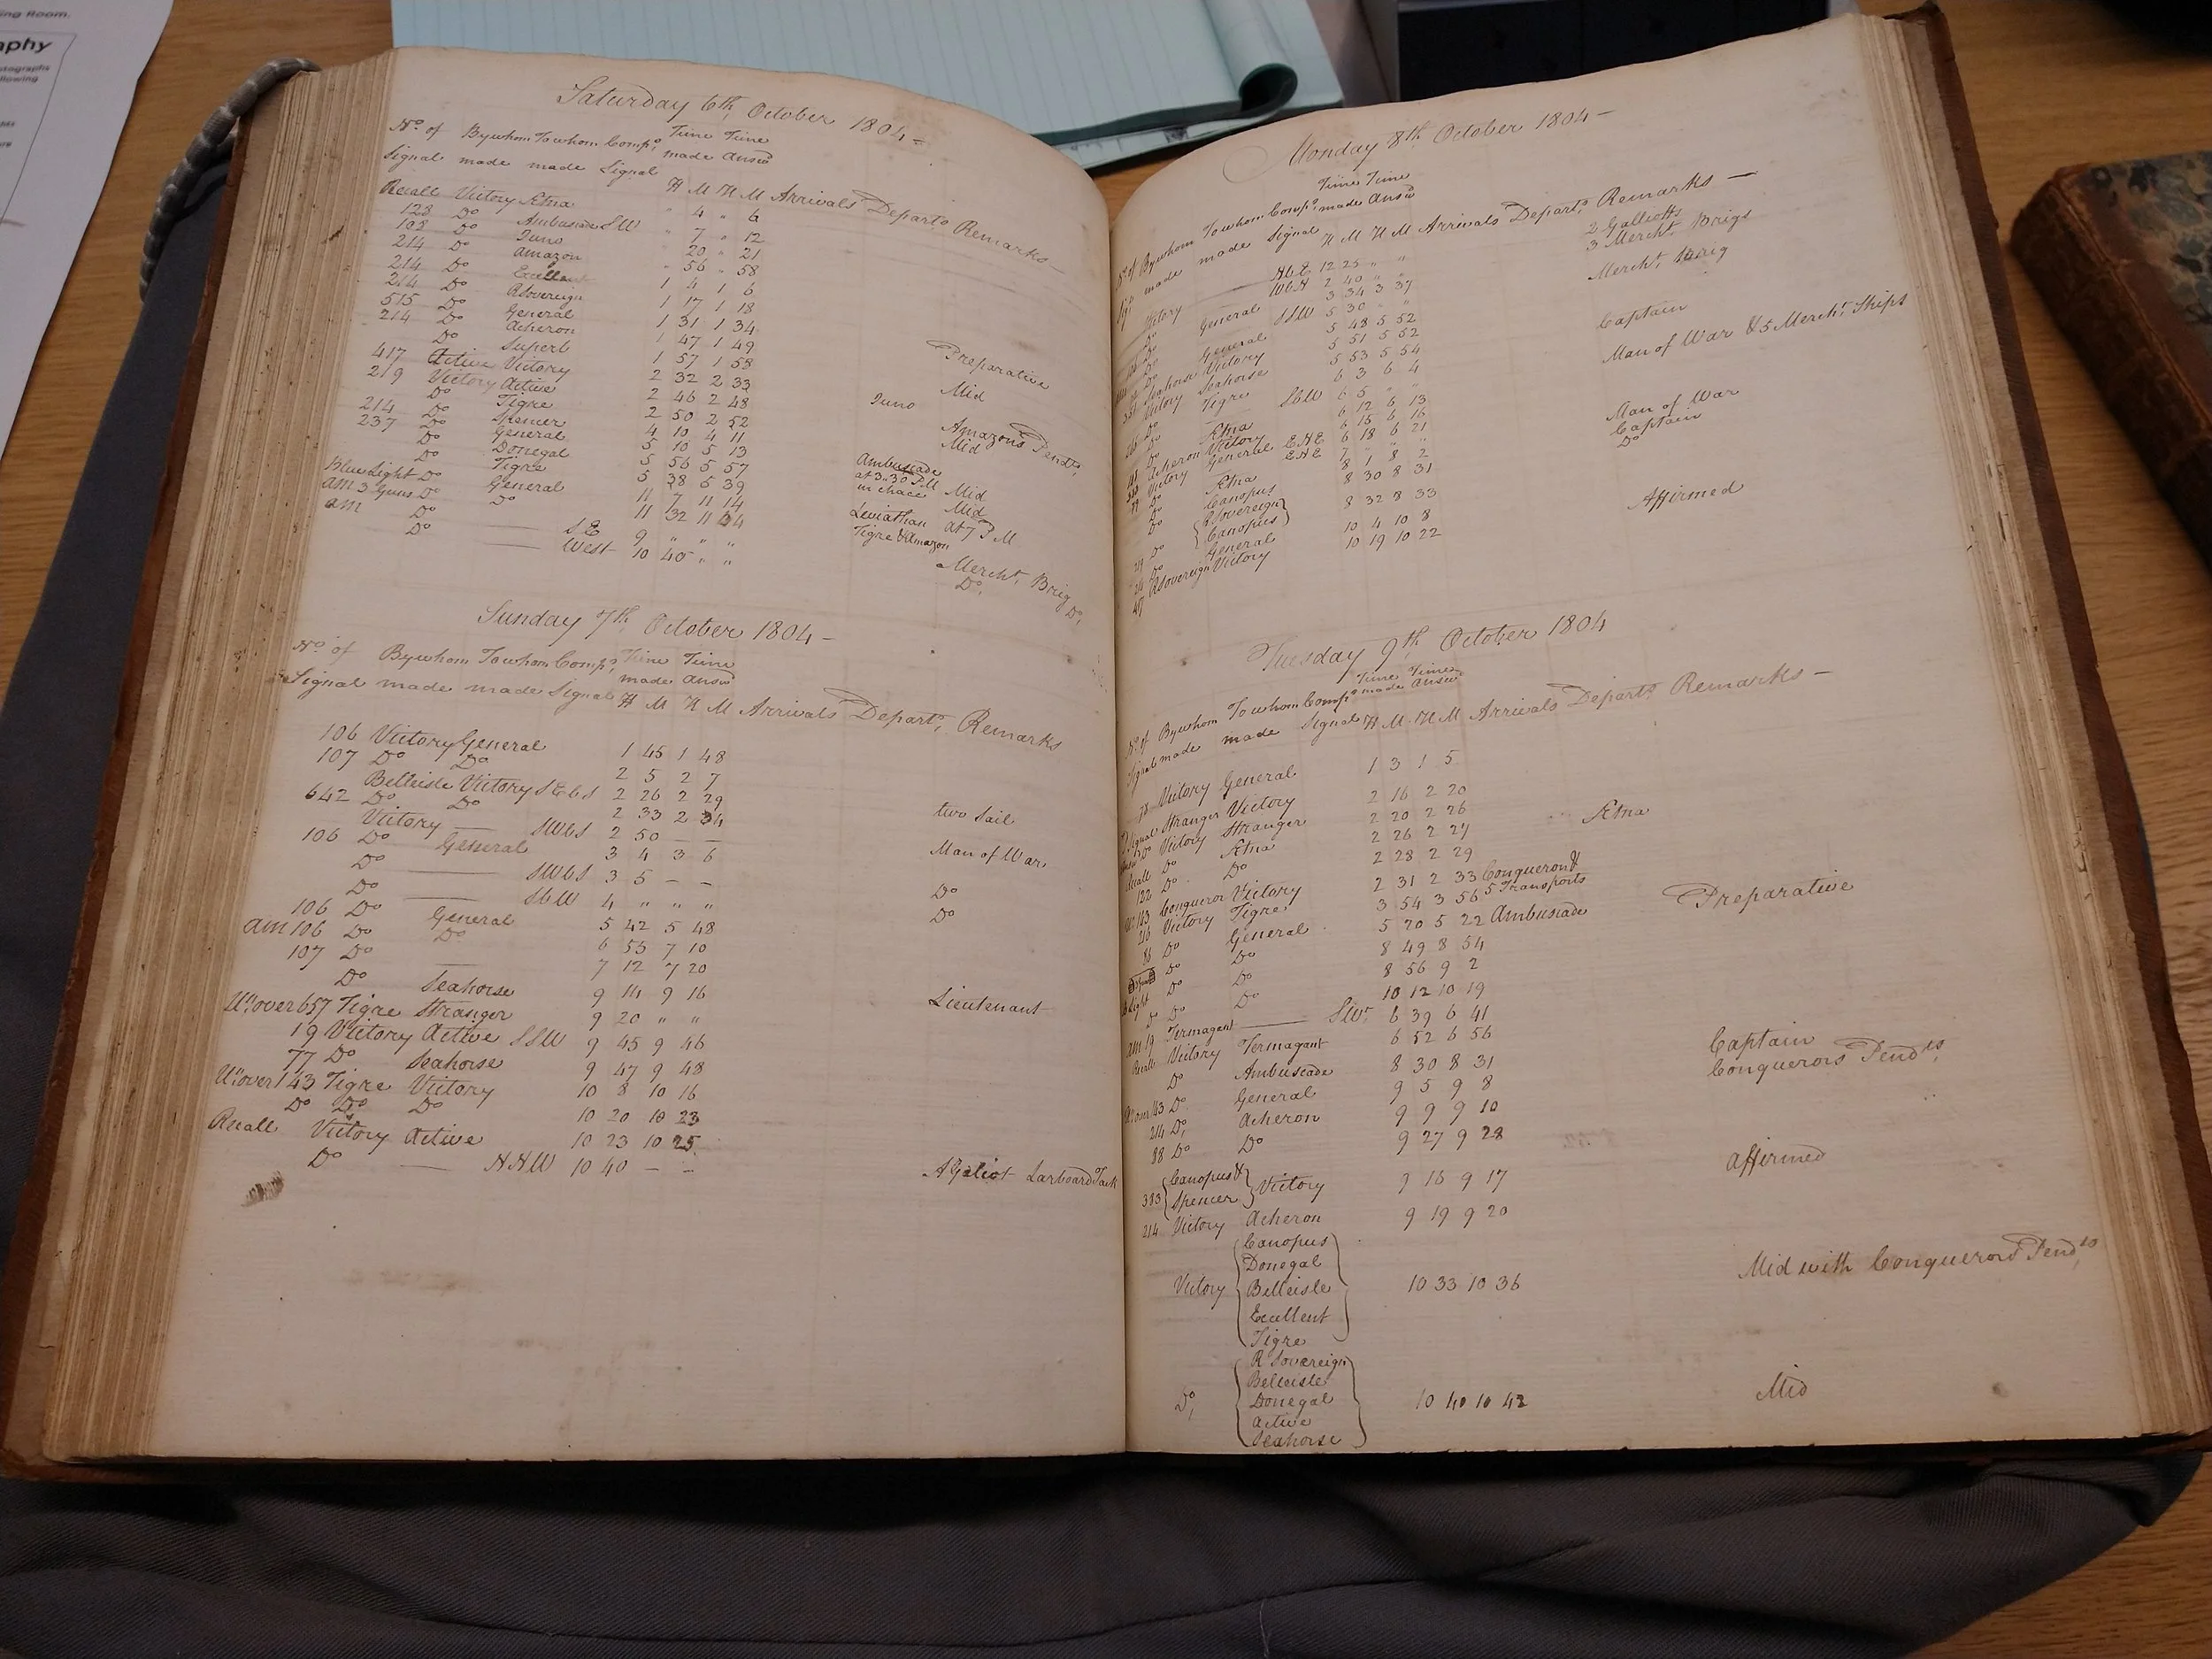 ing Room.
aphy
otographs
llowing
Saturday 6th, October 1804 =
No. of By whom To whom Comps. Time Time
Signal made made Signal made Answd
H M H M Arrivals Departs Remarks
Recall Victory Ætna " 4 " 6
128 Do Ambuscade SW " 7 " 12
108 Do Juno " 20 " 21
214 Do Amazon " 56 " 58
214 Do Excellent 1 4 1 6
214 Do R Sovereign 1 17 1 18
515 Do General 1 31 1 34 Preparative
214 Do Acheron 1 47 1 49
Do Superb 1 57 1 58 Mid
417 Active Victory 2 32 2 33
219 Victory Active 2 46 2 48 Juno Amazons Pendts
Do Tigre 2 50 2 52 Mid
214 Do Spencer 4 10 4 11
237 Do General 5 10 5 13 Ambuscade at 3..30 PM in chace
Do Donegal 5 56 5 57 Mid
Do Tigre 5 38 5 39 Mid
Blue Light Do General 11 7 11 14 Leviathan at 7 PM
am 3 Guns Do Do 11 32 11 Tigre & Amazon
am Do — S.E 9 " " " Mercht. Brig
Do — West 10 40 " " Do. Do.
Sunday 7th, October 1804 –
No. of By whom To whom Comps. Time Time
made Answd
Signal made made Signal H M H M Arrivals Departs. Remarks
106 Victory General 1 45 1 48
107 Do Do 2 5 2 7
Belleisle Victory SEbS 2 26 2 29 two Sail
642 Do Do 2 33 2 34
Victory — SWbS 2 50 — — Man of War
106 Do General 3 4 3 6
Do — SWbS 3 5 – – Do
Do — SbW 4 " " " Do
106 Do General 5 42 5 48
am 106 Do Do 6 55 7 10
107 Do — 7 12 7 20
Do Seahorse 9 14 9 16 Lieutenant
Ur. over 657 Tigre Stranger 9 20 " "
19 Victory Active SSW 9 45 9 46
77 Do Seahorse 9 47 9 48
Ur. over 143 Tigre Victory 10 8 10 16
Do Do Do 10 20 10 23
Recall Victory Active 10 23 10 25
Do — NNW 10 40 – – A Galiot Larboard Tack
Monday 8th October 1804 –
No. of By whom To whom Comps. Time Time
made Answd
made made Signal H M H M Arrivals Departs. Remarks —
NbE 12 25 " " 2 Galliotts
3 Mercht. Brigs
Victory WbN 2 40 " " Mercht. Brig
Do General 3 34 3 37
Do SSW 5 30 " "
Do General 5 48 5 52 Captain
Seahorse Victory 5 51 5 52 Man of War & 5 Mercht. Ships
Victory Seahorse 5 53 5 54
Do Tigre 6 3 6 4
SbW 6 5 " " Man of War
Do Ætna 6 12 6 13 Captain
Acheron Victory 6 15 6 16 Do
Victory General ENE 6 18 6 21
ENE 7 " " "
Do Ætna 8 1 8 2
Do Canopus 8 30 8 31
Do R Sovereign Canopus 8 32 8 33 Affirmed
Do General 10 4 10 8
R Sovereign Victory 10 19 10 22
Tuesday 9th October 1804
No. of By whom To whom Comps. Time Time
made Answd
Signal made made Signal H M H M Arrivals Departs Remarks –
Victory General 1 3 1 5
Signal Stranger Victory 2 16 2 20
Do Victory Stranger 2 20 2 26
Recall Do Ætna 2 26 2 27 Ætna
122 Do Do 2 28 2 29
143 Conqueror Victory 2 31 2 33 Conqueror & 5 Transports
216 Victory Tigre 3 54 3 56
86 Do General 5 20 5 22 Ambuscade Preparative
Do Do 8 49 8 54
Light Do Do 8 56 9 2
Do Do Do 10 12 10 19
am 19 Termagant — SWr 6 39 6 41
Recall Victory Termagant 6 52 6 56
Do Ambuscade 8 30 8 31 Captain
Ur. over 143 Do General 9 5 9 8 Conquerors Pendts,
214 Do, Acheron 9 9 9 10
88 Do Do 9 27 9 28
383 Canopus & Spencer Victory 9 16 9 17 affirmed
214 Victory Acheron 9 19 9 20
Canopus
Donegal
Victory Belleisle 10 33 10 36 Mid with Conquerors Pendts,
Excellent
Tigre
R Sovereign
Belleisle
Do, Donegal 10 40 10 42 Mid
Active
Seahorse